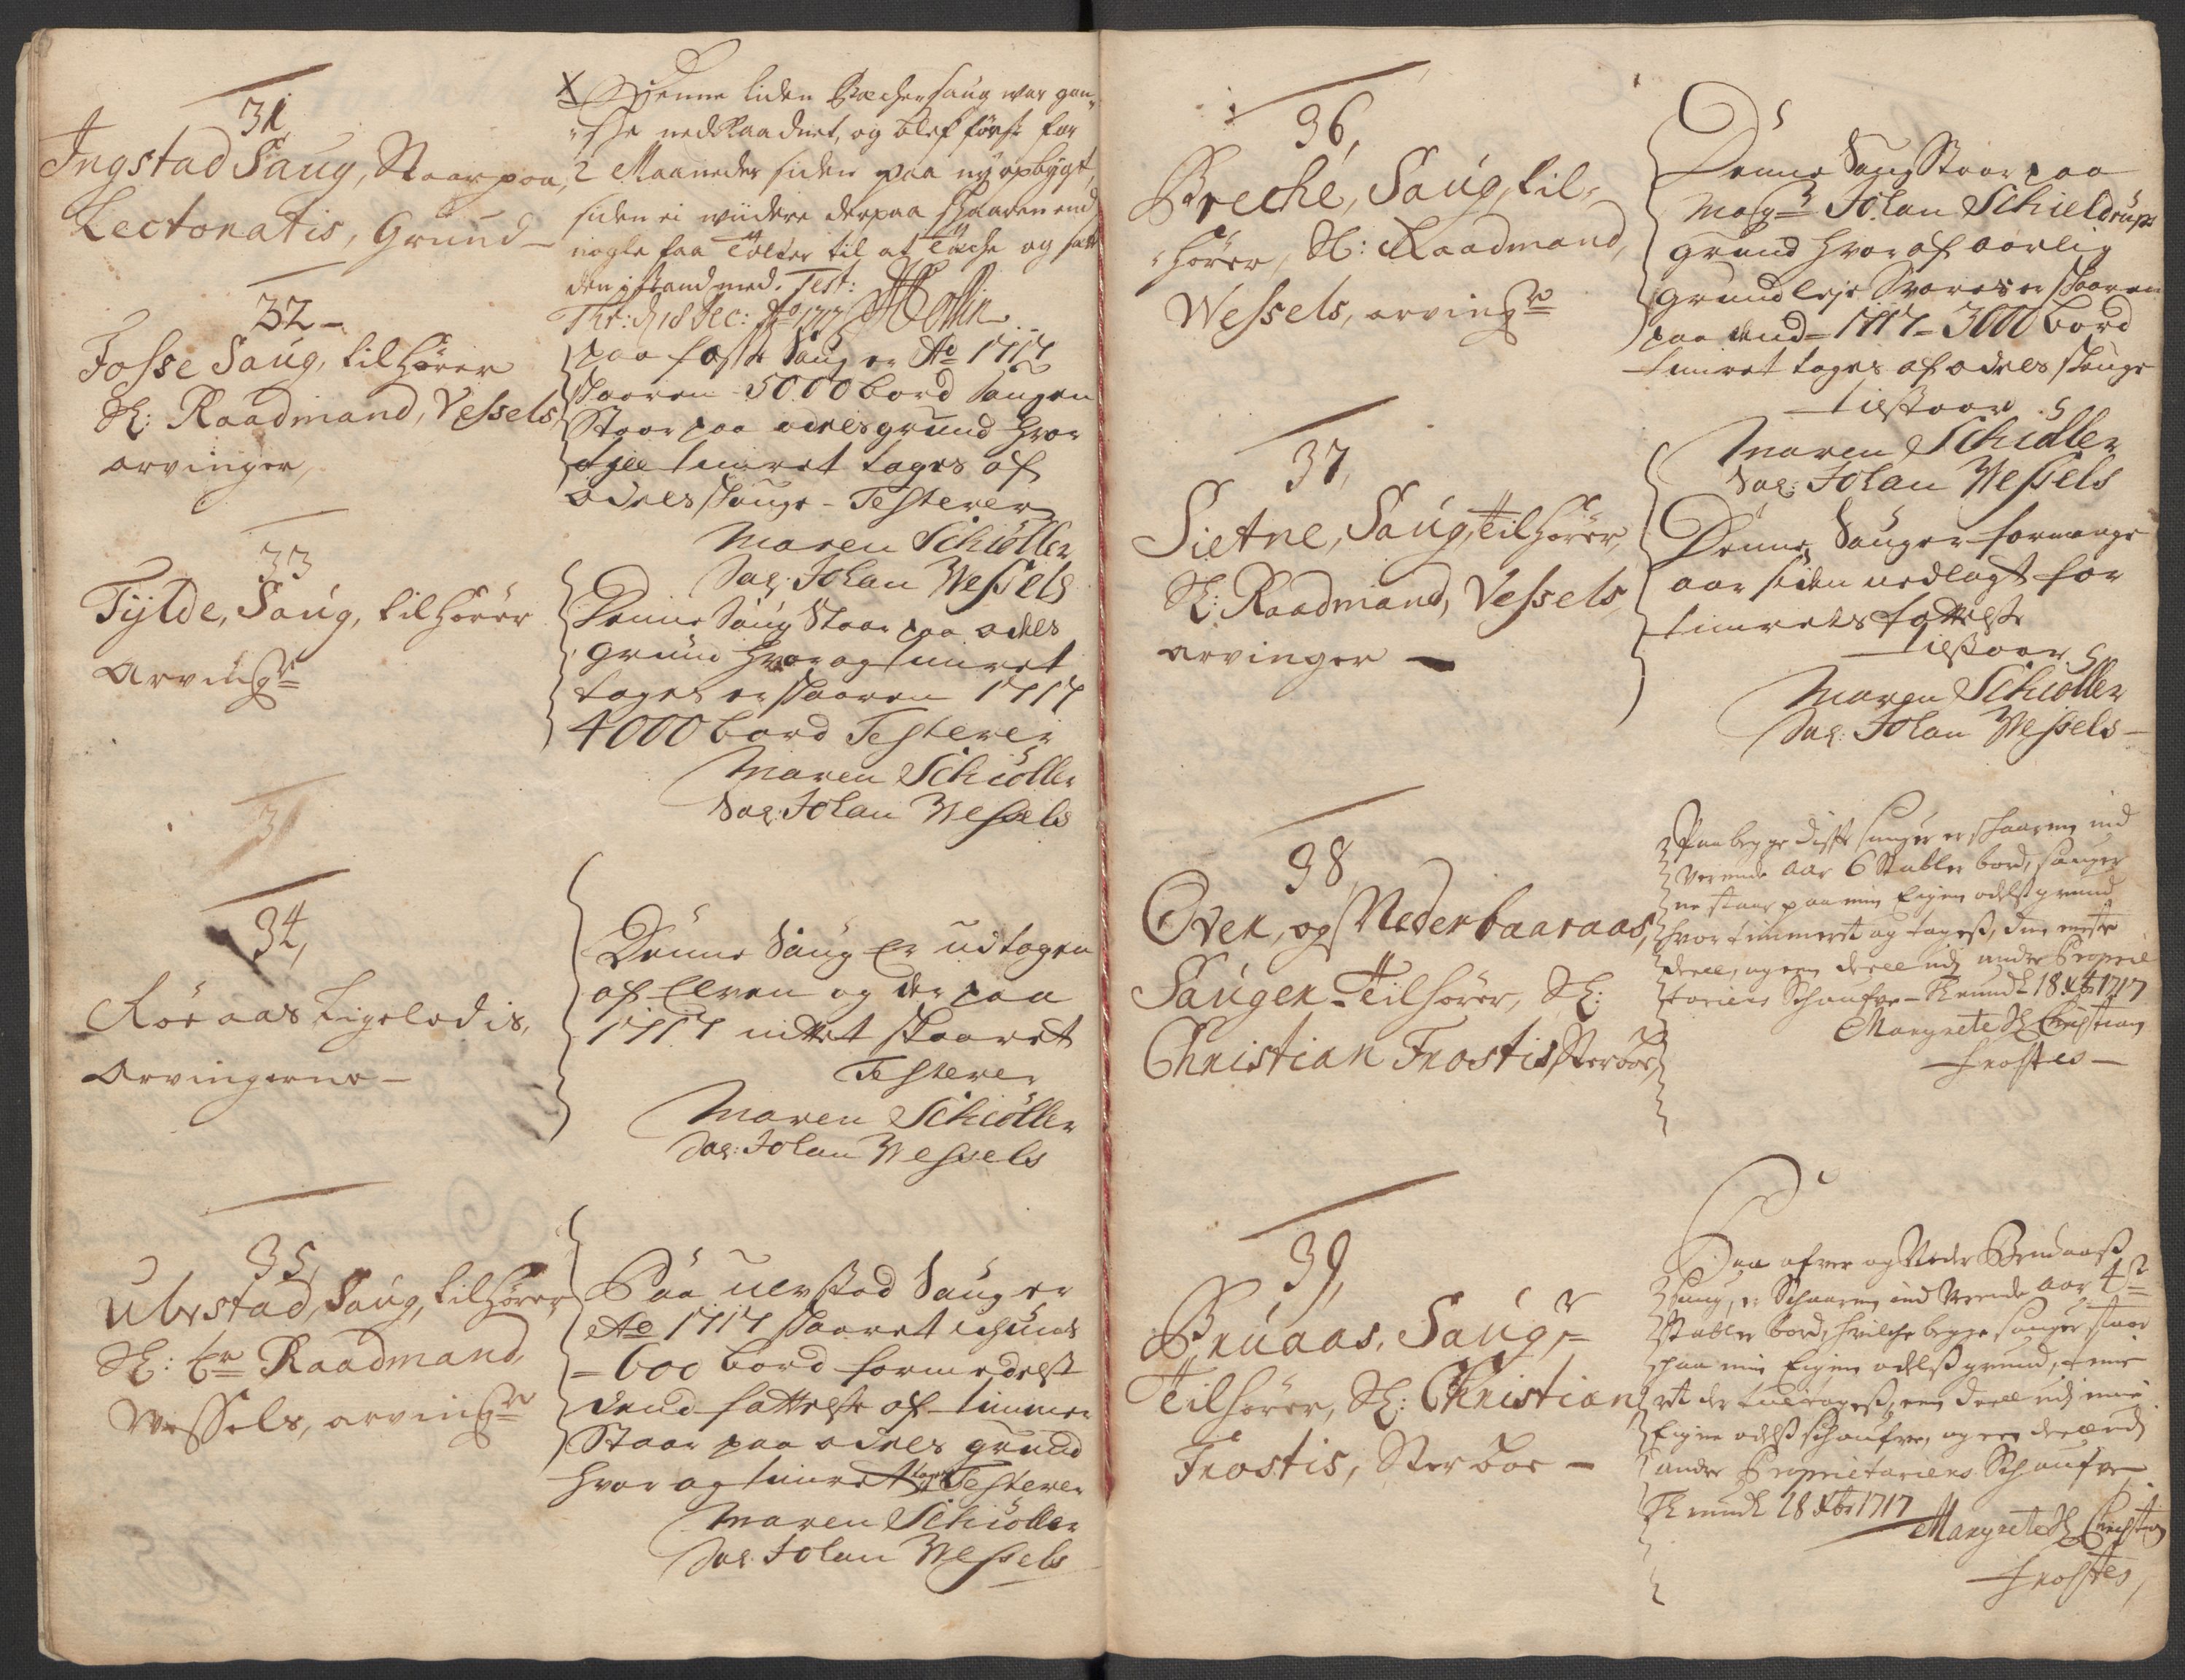 31,
Ingstad Saug, Staar paa,
Lectoratis, Grund –
X Denne liden Beckersaug war gan„
„ske nedRaadnet, og blef først for
2 Maaneder siden paa ny opbÿgt,
siden ei wiidere derpaa skaaren end
nogle faa Tølter til at Täche og satt
den i stand med. Test:
Thr: d 18 Dec: Ao 1717
32 –
Fosse Saug, tilhører
Sl: Raadmand, Vessels
arvinger,
paa fosse Saug er Ao 1717
skaaren 5000 bord Saugen
Staar paa odelsgrund hvor
tømret tages af
odels skouge – Testerer
Maren Schiøller
Sal: Johan Wessels
33
Fijlde, Saug, tilhører
Arving r
Denne Saug Staar paa odels
grund hvor og tømret
tages er skaaren 1717
4000 bord Testerer
Maren Schiøller
Sal: Johan Wessels
34,
Röe aas Ligeledis,
Arvingerne –
Denne Saug Er udtagen
af Elven og der paa
1717 intet skaaret
Testerer
Maren Schiøller
Sal: Johan Wessels
35,
Ulvstad, Saug, tilhører
Sl: Raadmand,
Wessels, arving r
Paa ulvstad Saug er
Ao 1717 skaaret
– 600 bord formedelst
dend fattelse af timmer
Staar paa odels grund
hvor og tømret tages Testerer
Maren Schiøller
Sal. Johan Wessels
36,
Breche, Saug, til„
„hører, Sl: Raadmand,
Wessels, arving r
Denne Saug Staar paa
Mag r Johan Schieldrups
grund hvor af aarlig
grundleje Svares er skaaren
paa dend – 1717 – 3000 bord
tømret tages af odels skouge
Tilstaar
Maren Schiøller
Sal: Johan Wessels
37,
Sietne, Saug, Tilhører,
Sl: Raadmand, Vessels
arvinger –
Denne Saug er for mange
aar siden nedlagt for
tømrets fattelse
Tilstaar
Maren Schiøller
Sal: Johan Wessels –
38,
Over, og Nederbaaraas,
Sauger Tilhører, Sl:
Christian Frostis, Sterboe,
Paa begge disse sauger er skaaren ind
verende aar 6 Stabler bord, sauger
ne staar paa min Eigen odelsgrund
hvor timmeret og tages, den meste
deell, og en deell udj andre Propriet
tariers Schoufve – Tronnd 18 Xbr 1717
Margrete Sl Christian
Frostes –
39,
Bruaas, Saug r
Tilhører, Sl: Christian
Frostis, Sterboe –
Paa ofver og Neder Bruaas
saug, er Schaaren ind Werende aar 4
Stabler bord, hvilche begge sauger staar
paa min Eigen odelsgrund, timme
ret der til tages, een deell udj min
Eigen odels schoufve, og een deell udj
andre Proprietariers Schoufve
Tronnd 18 Xbr 1717
Margrete Sl Christian
Frostes,